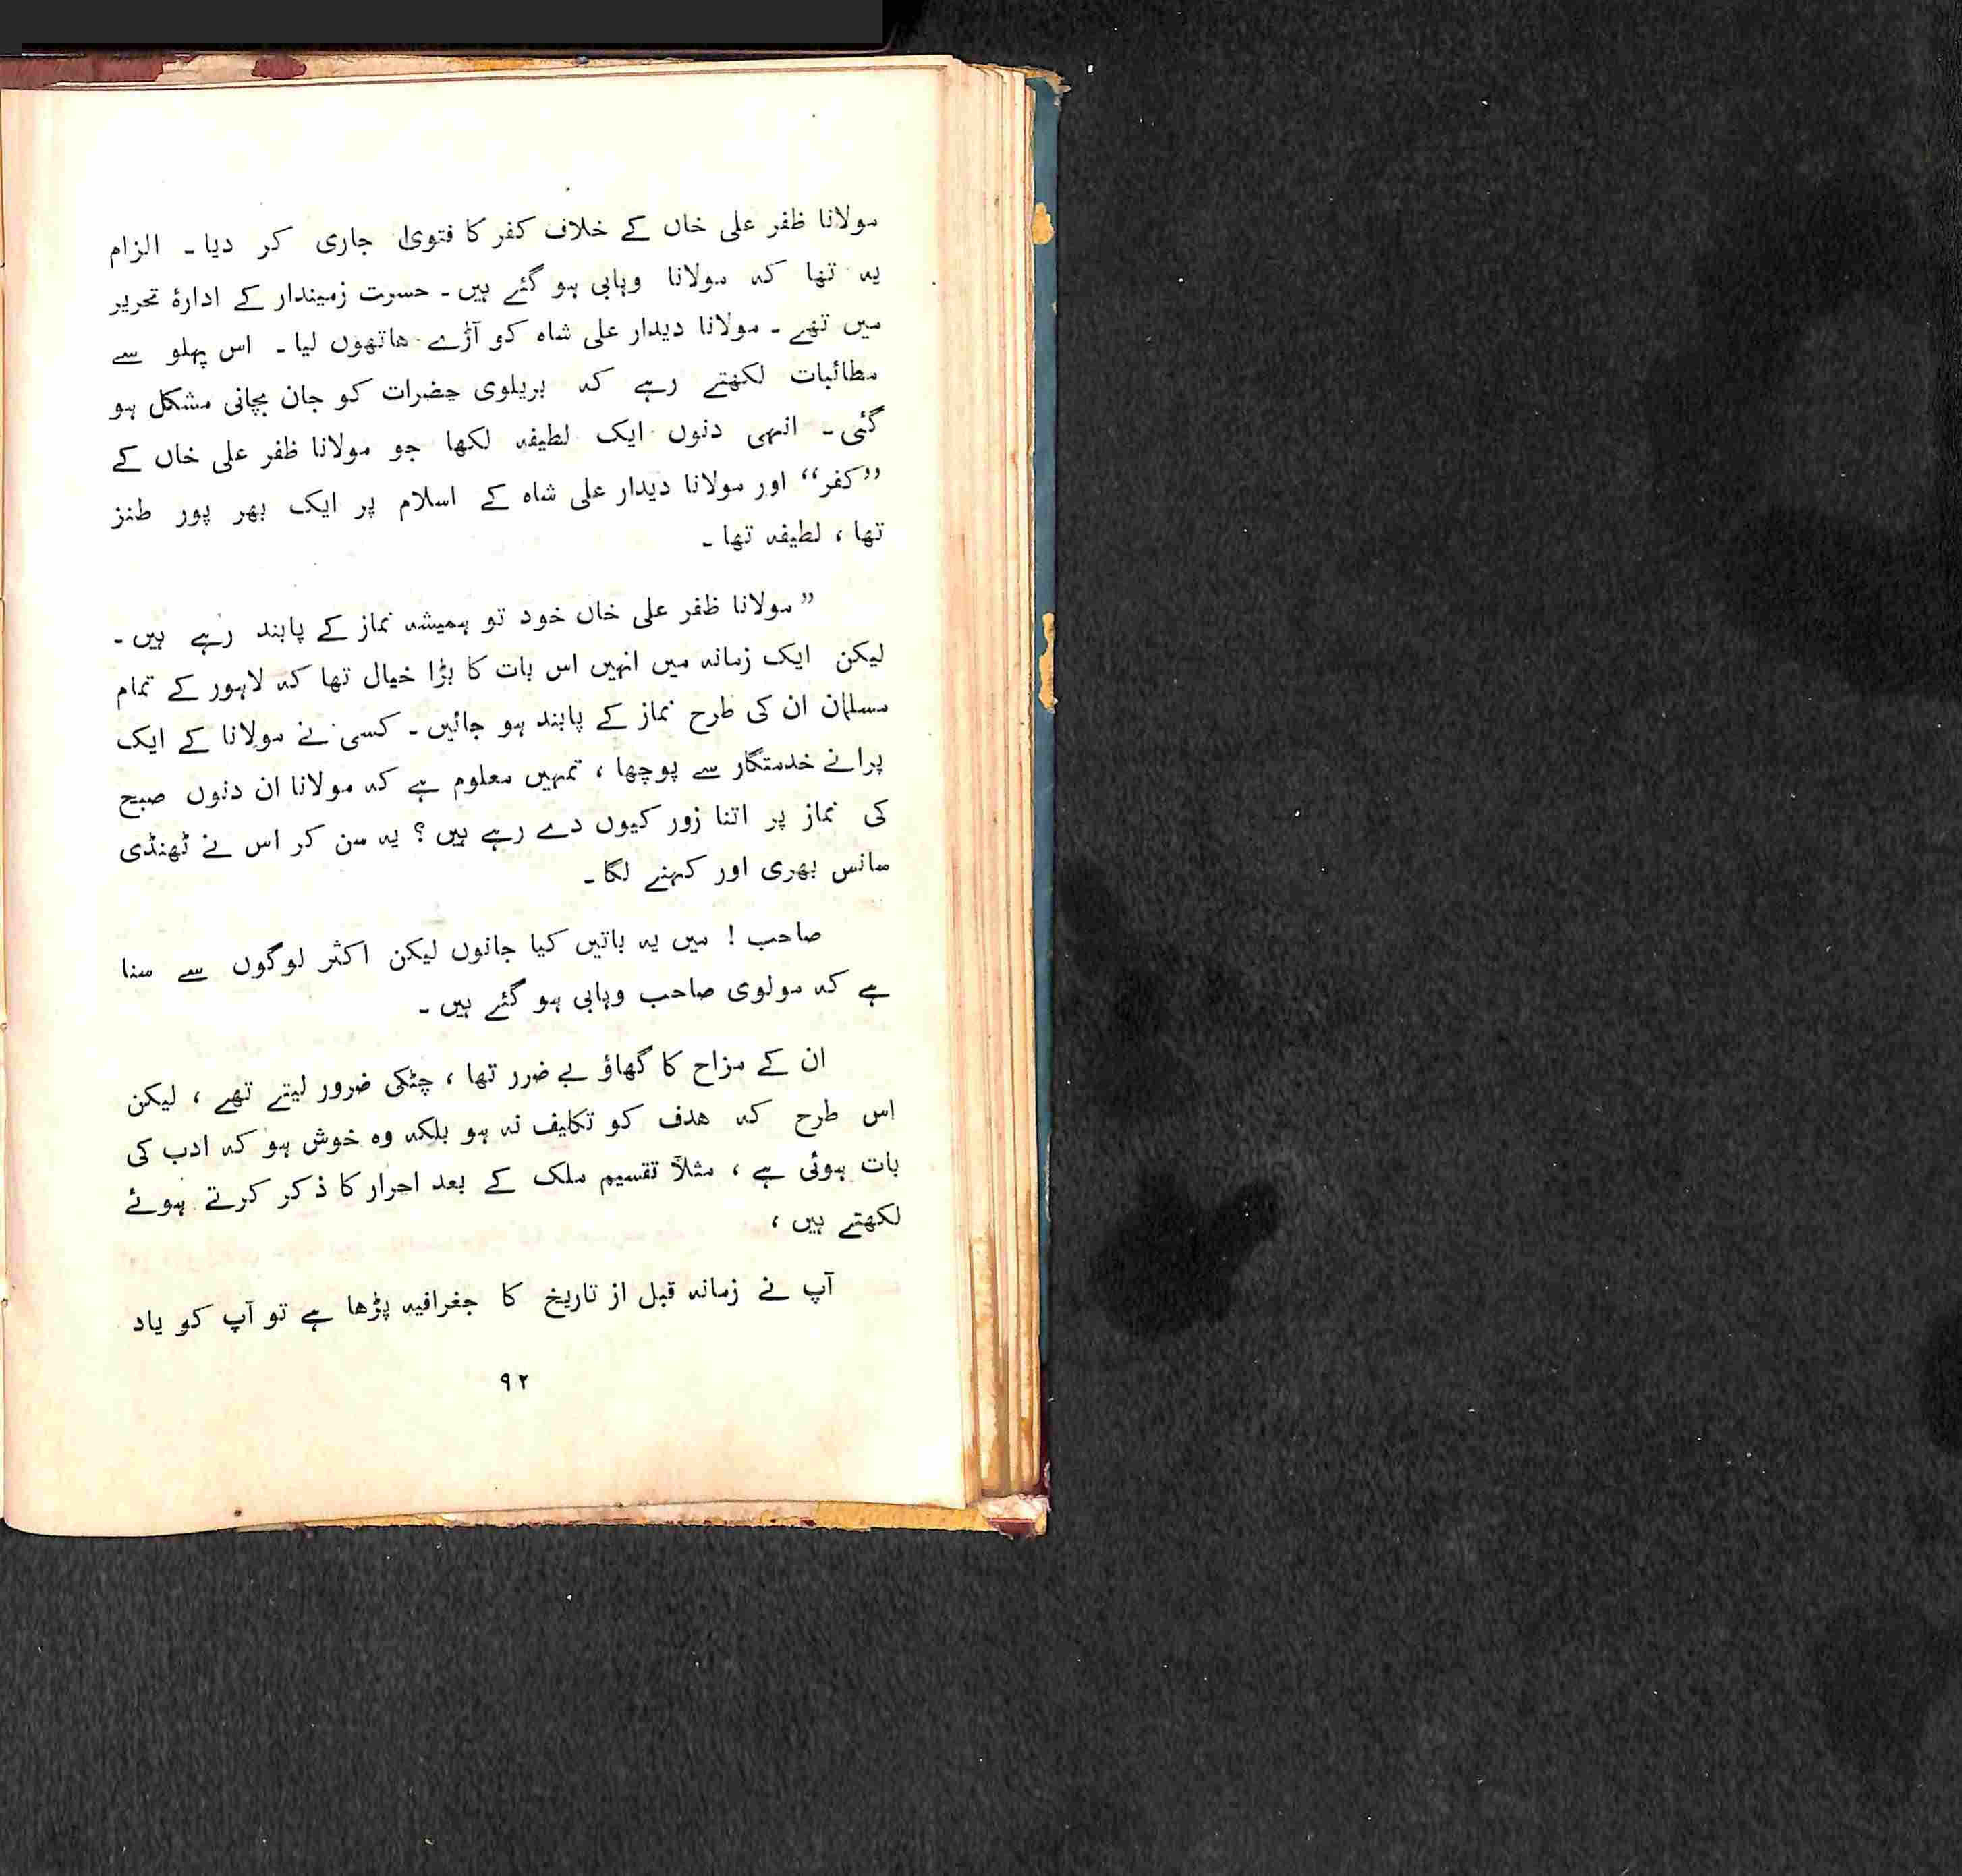 مولانا ظفر علی خاں کے خلاف کفر کا فتویٰ جاری کر دیا۔ الزام
یہ تھا کہ مولانا وہابی ہو گئے ہیں۔ حسرت زمیندار کے ادارۂ تحریر
میں تھے۔ مولانا دیدار علی شاہ کو آڑے ہاتھوں لیا۔ اس پہلو سے
مطائبات لکھتے رہے کہ بریلوی حضرات کو جان بچانی مشکل ہو
گئی۔ انہی دنوں ایک لطیفہ لکھا جو مولانا ظفر علی خاں کے
”کفر“ اور مولانا دیدار علی شاہ کے اسلام پر ایک بھر پور طنز
تھا ، لطیفہ تھا۔
”مولانا ظفر علی خاں خود تو ہمیشہ نماز کے پابند رہے ہیں۔
لیکن ایک زمانہ میں انہیں اس بات کا بڑا خیال تھا کہ لاہور کے تمام
مسلمان ان کی طرح نماز کے پابند ہو جائیں۔ کسی نے مولانا کے ایک
پرانے خدمتگار سے پوچھا ، تمہیں معلوم ہے کہ مولانا ان دنوں صبح
کی نماز پر اتنا زور کیوں دے رہے ہیں؟ یہ سن کر اس نے ٹھنڈی
سانس بھری اور کہنے لگا۔
صاحب ! میں یہ باتیں کیا جانوں لیکن اکثر لوگوں سے سنا
ہے کہ مولوی صاحب وہابی ہو گئے ہیں۔
ان کے مزاح کا گھاؤ بے ضرر تھا ، چٹکی ضرور لیتے تھے ، لیکن
اس طرح کہ ہدف کو تکلیف نہ ہو بلکہ وہ خوش ہو کہ ادب کی
بات ہوئی ہے ، مثلاً تقسیم ملک کے بعد احرار کا ذکر کرتے ہوئے
لکھتے ہیں ،
آپ نے زمانہ قبل از تاریخ کا جغرافیہ پڑھا ہے تو آپ کو یاد
۹۲